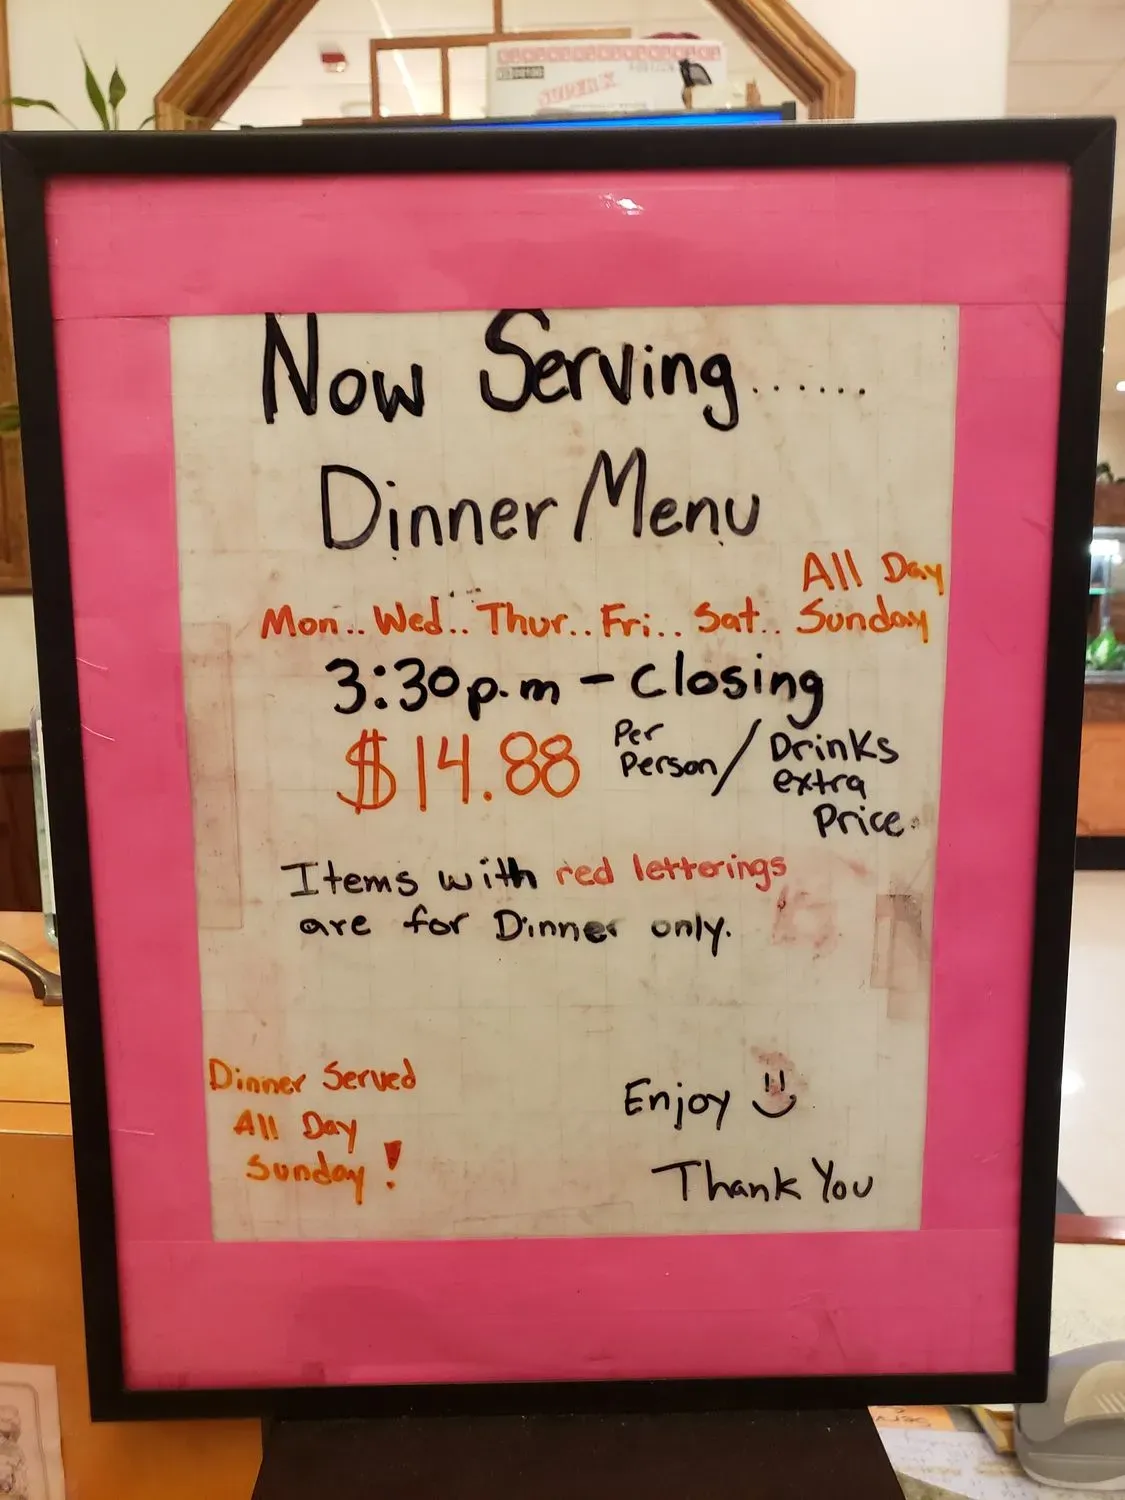 Now Serving......
Dinner Menu
All Day
Mon.. Wed.. Thur.. Fri.. Sat.. Sunday
3:30p.m - Closing
$14.88 Per Person / Drinks extra Price.
Items with red letterings
are for Dinner only.
Dinner Served
All Day
Sunday!
Enjoy
Thank You